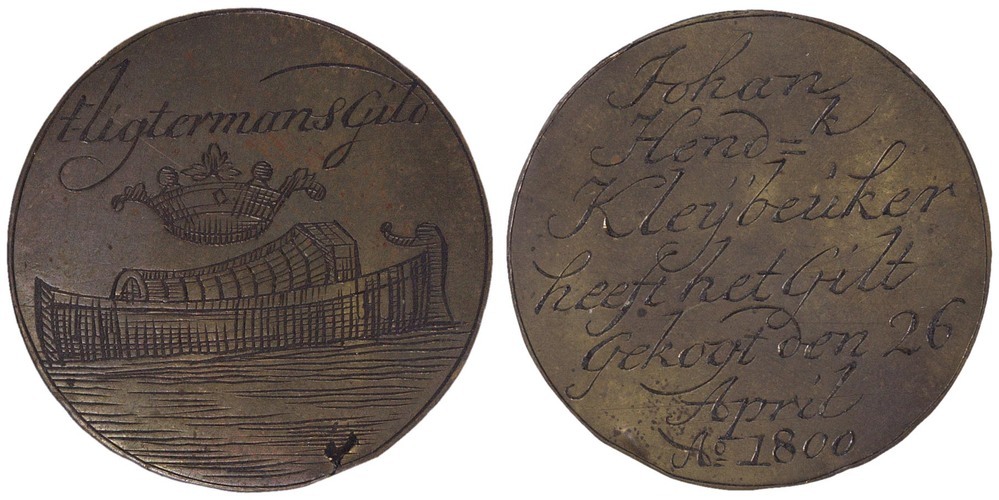 Hligtermans Gild
Johan
Hend=k
Kleÿbeüker
heeft het Gilt
Gekogt den 26
April
Ao 1800